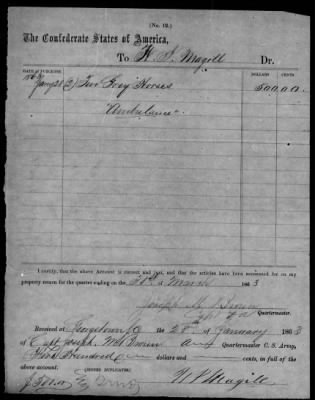 (No. 12.)
The Confederate States of America,
To W. S. Magill Dr.
DATE OF PURCHASE. DOLLARS CENTS
Jany 28 (2) Two Gray Horses 500 00
"Ambulance".
I certify, that the above Account is correct and just, and that the articles have been accounted for on my
property return for the quarter ending on the of March 1863
Joseph
Quartermaster.
Received at Georgetown, the 28th of January 1863
of Capt Joseph Quartermaster C. S. Army,
Five Hundred dollars and cents, in full of the
above account. [SIGNED DUPLICATES.]
W. S. Magill